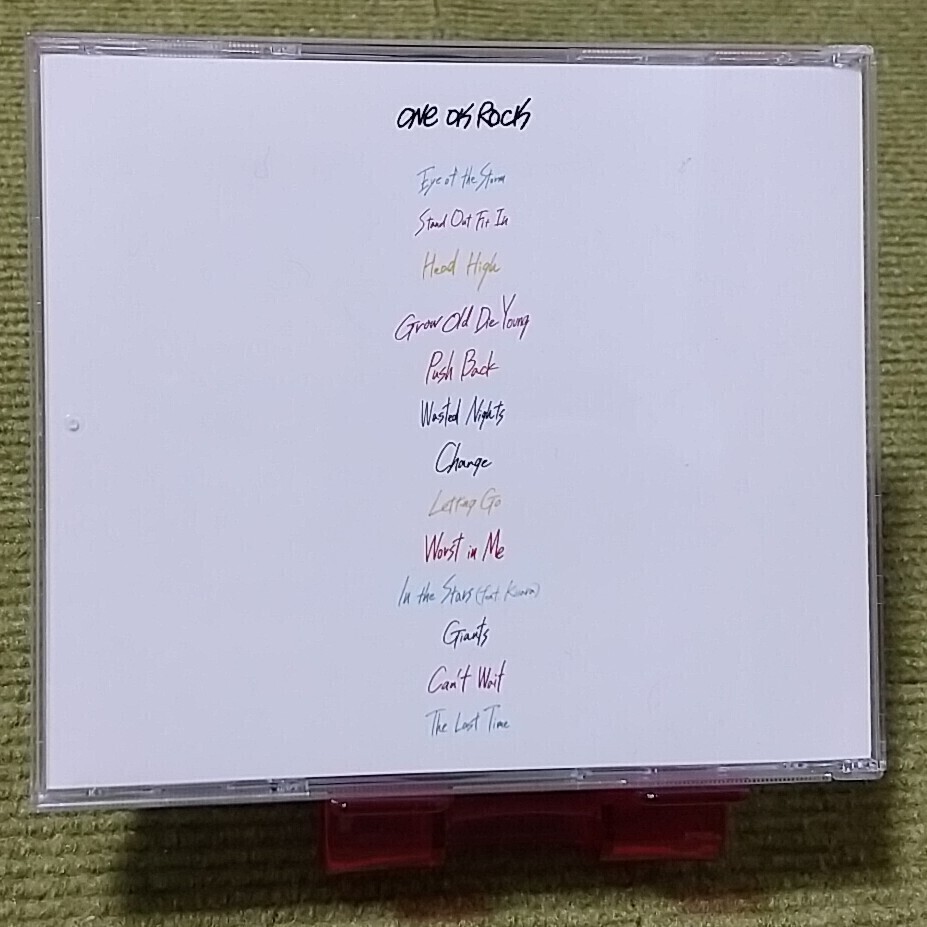 ONE OK ROCK
Eye of the Storm
Stand Out Fit In
Head High
Grow Old Die Young
Push Back
Wasted Nights
Change
Letting Go
Worst in Me
In the Stars (feat. Kiiara)
Giants
Can't Wait
The Last Time